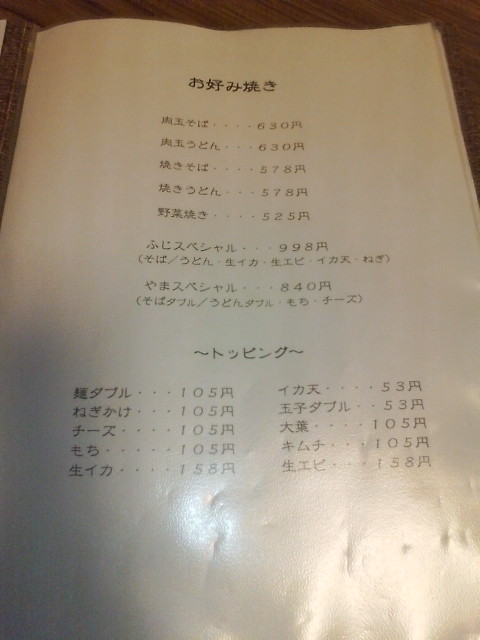 お好み焼き
肉玉そば・・・・630円
肉玉うどん・・・630円
焼きそば・・・・578円
焼きうどん・・・578円
野菜焼き・・・・525円
ふじスペシャル・・・998円
(そば／うどん・生イカ・生エビ・イカ天・ねぎ)
やまスペシャル・・・840円
(そばダブル／うどんダブル・もち・チーズ)
～トッピング～
麺ダブル・・・105円
ねぎかけ・・・105円
チーズ・・・・105円
もち・・・・・105円
生イカ・・・・158円
イカ天・・・・53円
玉子ダブル・・53円
大葉・・・・105円
キムチ・・・105円
生エビ・・・158円